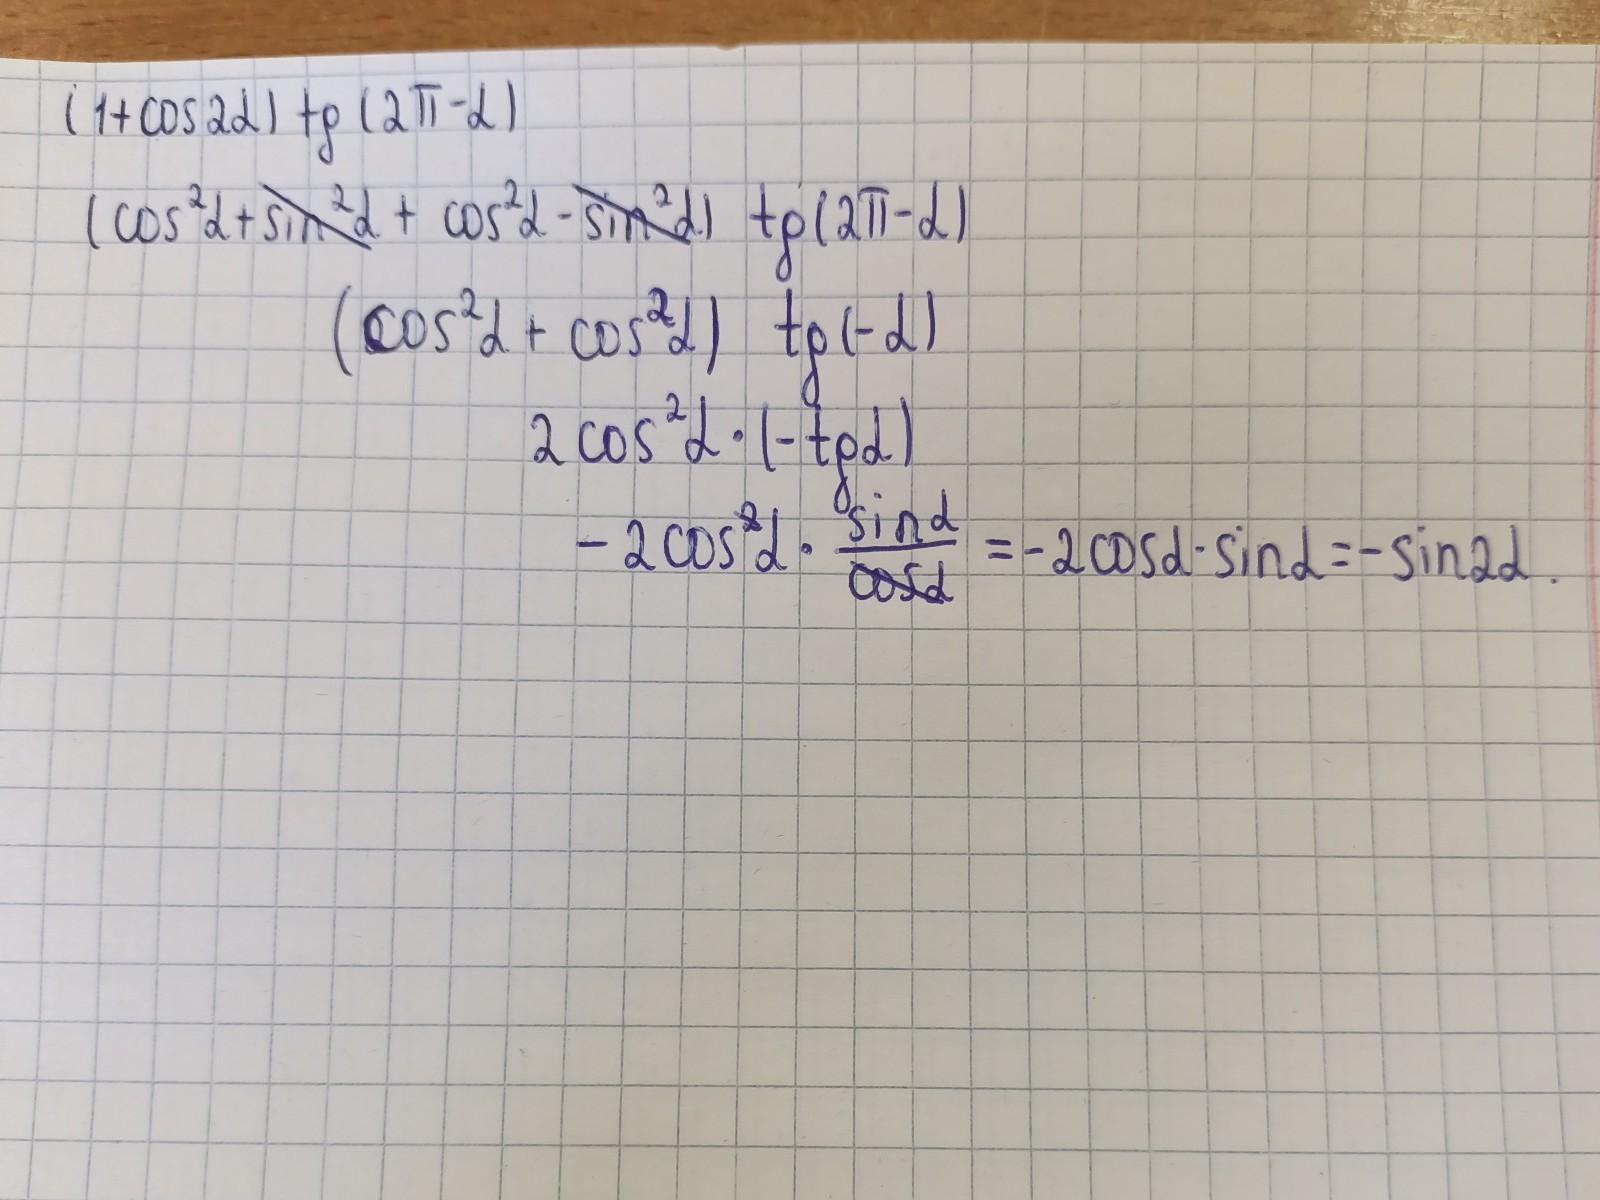 (1+cos2α) tg(2π-α)
(cos²α+sin²α + cos²α-sin²α) tg(2π-α)
(cos²α + cos²α) tg(-α)
2cos²α·(-tgα)
-2cos²α · sinα/cosα = -2cosα·sinα=-sin2α.